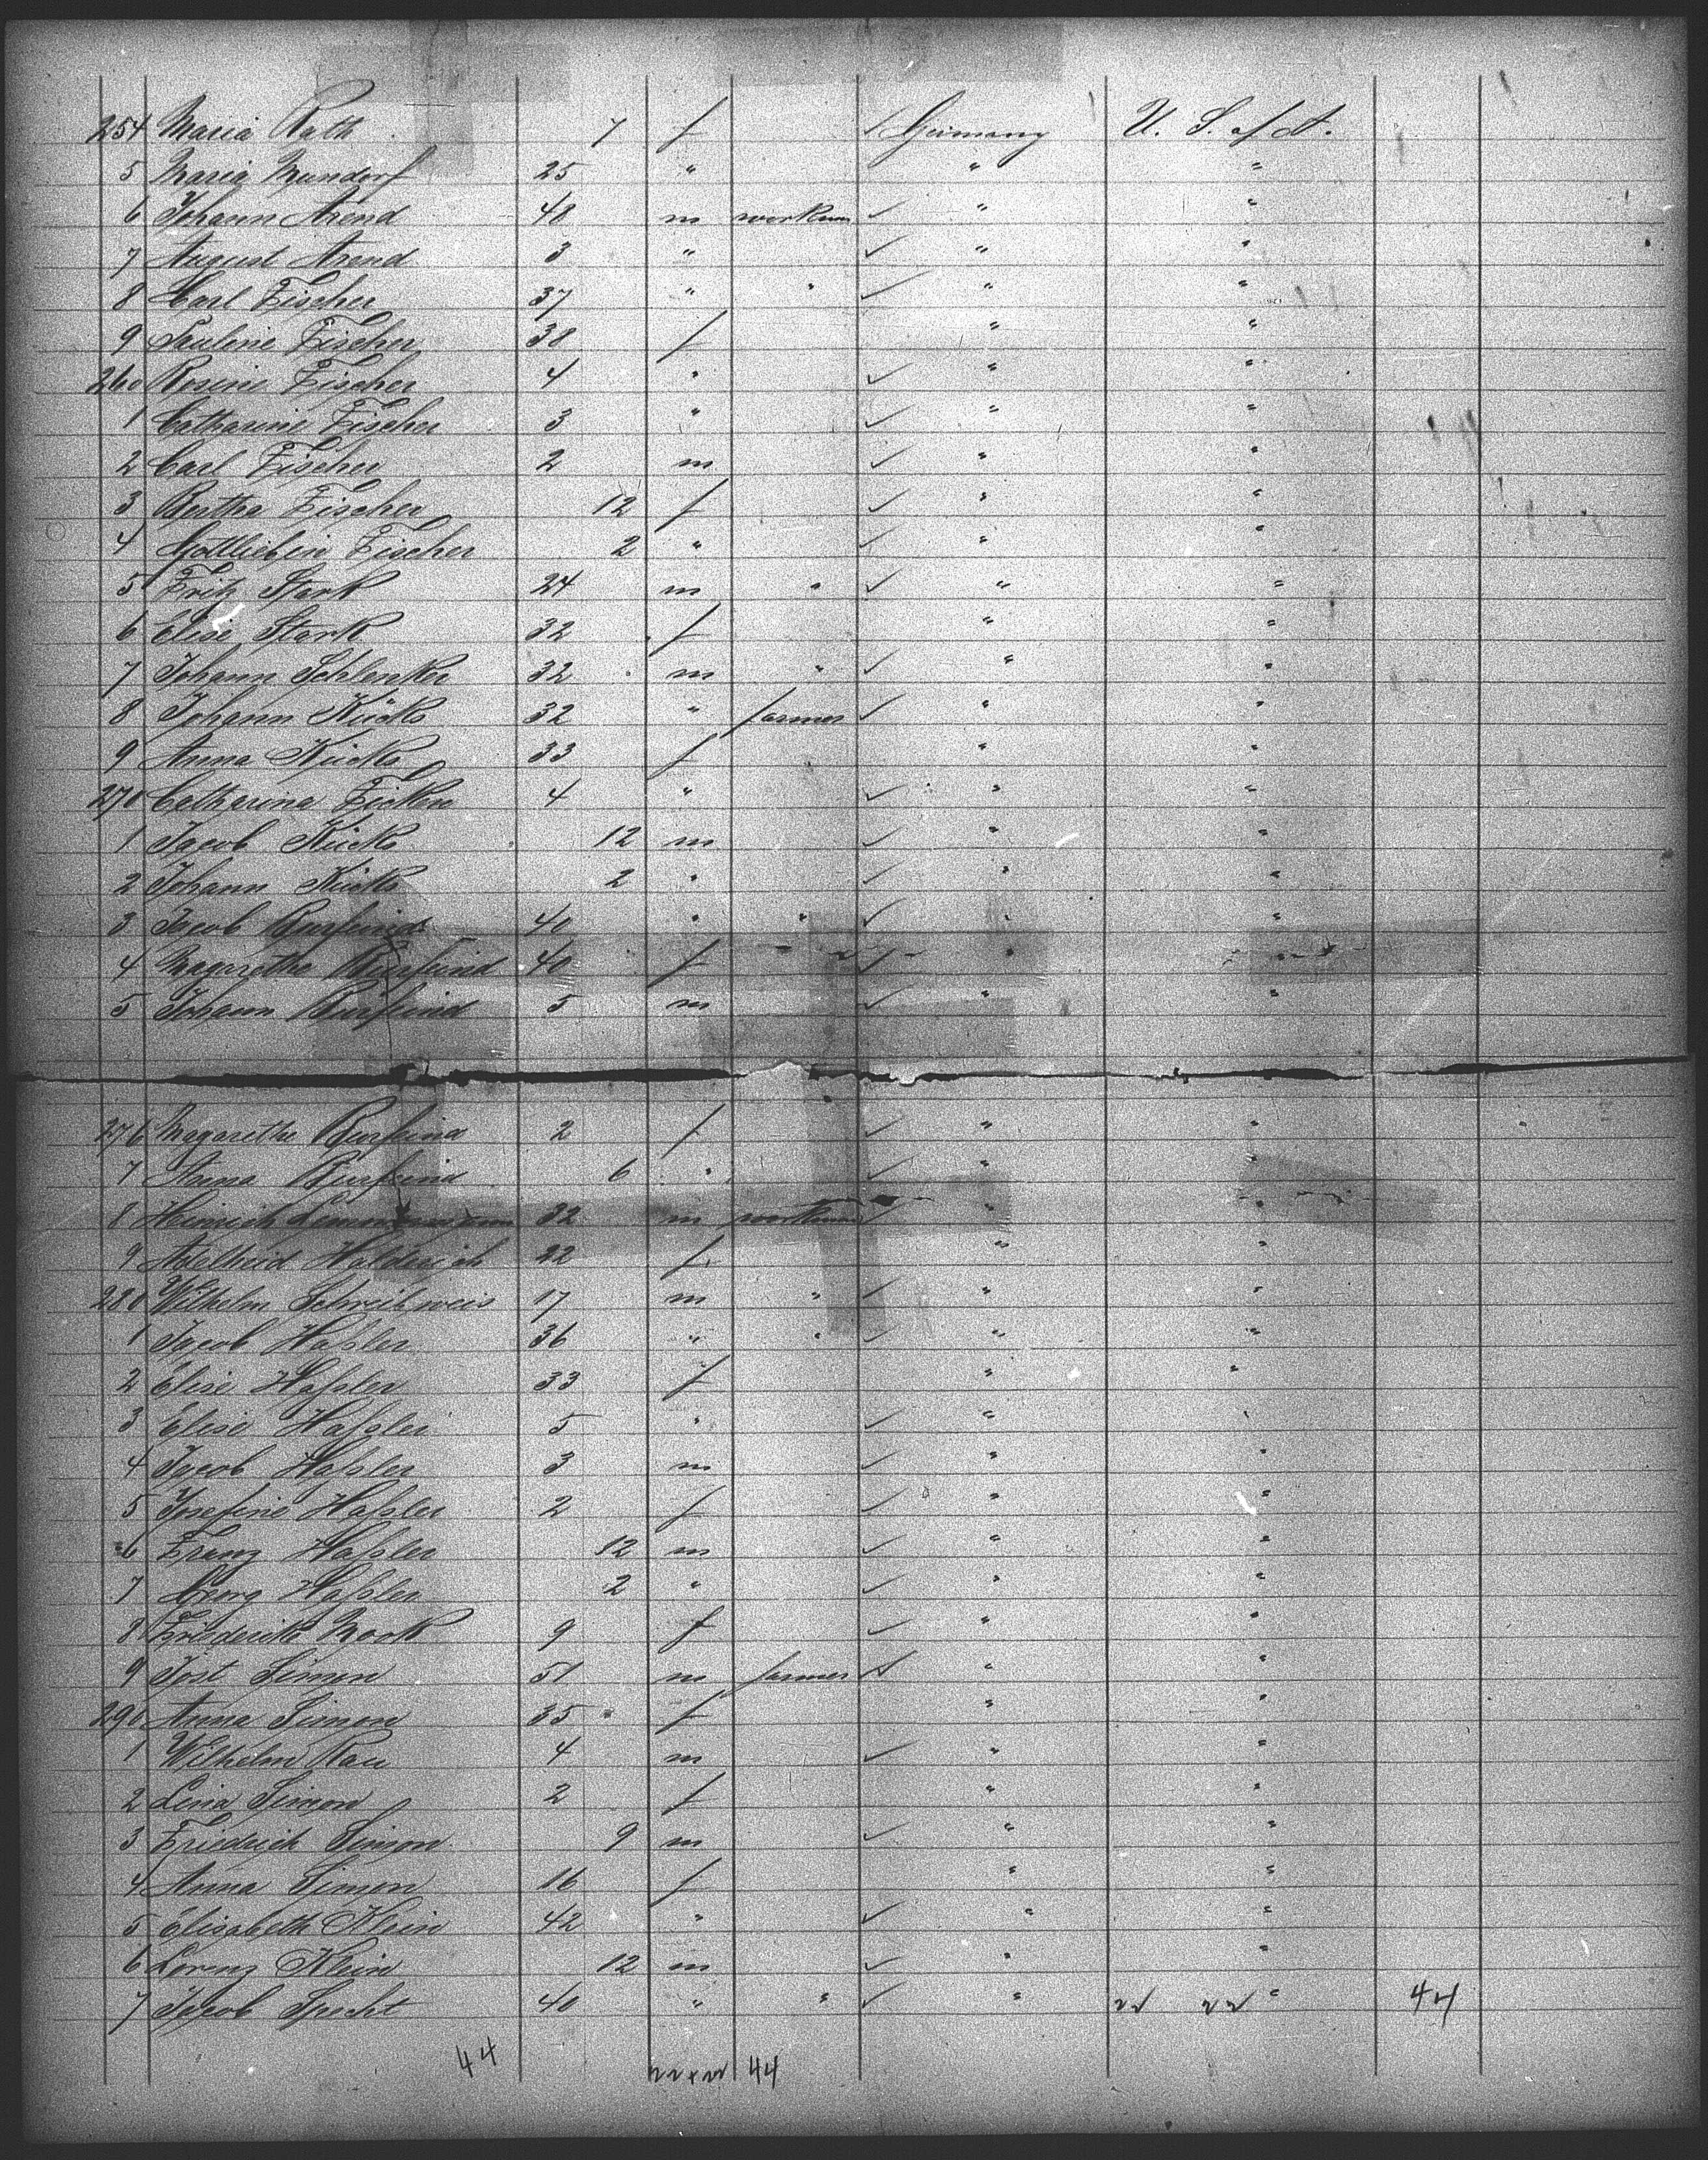 254 Maria Rath 7 f ✓ Germany U. S. of A.
5 Maria Mundorf 25 " " "
6 Johann Arend 48 m workm ✓ " "
7 August Arend 3 " ✓ " "
8 Carl Fischer 37 " " ✓ " "
9 Pauline Fischer 38 f " "
260 Rosine Fischer 4 " ✓ " "
1 Catharine Fischer 3 " ✓ " "
2 Carl Fischer 2 m ✓ " "
3 Bertha Fischer 12 f ✓ " "
4 Gottliebin Fischer 2 " ✓ " "
5 Fritz Stark 24 m " ✓ " "
6 Elise Stark 32 f " "
7 Johann Schlenker 32 m " ✓ " "
8 Johann Kücks 32 " farmer ✓ " "
9 Anna Kücks 33 f " "
270 Catharina Ficken 4 " ✓ " "
1 Jacob Kücks 12 m ✓ " "
2 Johann Kücks 2 " ✓ " "
3 Jacob Burfeind 40 " " ✓ " "
4 Magarethe Burfeind 40 f ✓
5 Johann Burfeind 5 m ✓ " "
276 Magarethe Burfeind 2 f ✓ " "
7 Anna Burfeind 6 " ✓ " "
8 Heinrich 32 m workm ✓ " "
9 Adelheid 22 f " "
280 Wilhelm Schreibweis 17 m " ✓ " "
1 Jacob Haßler 36 " " ✓ " "
2 Elise Haßler 33 f " "
3 Elise Haßler 5 " ✓ " "
4 Jacob Haßler 3 m ✓ " "
5 Josefine Haßler 2 f ✓ " "
6 Franz Haßler 12 m ✓ " "
7 Georg Haßler 2 " ✓ " "
8 Friederike Mook 9 f ✓ " "
9 Jost Simon 51 m farmer ✓ " "
290 Anna Simon 35 f " "
1 Wilhelm Rau 4 m ✓ " "
2 Lina Simon 2 f " "
3 Friedrich Simon 9 m ✓ " "
4 Anna Simon 16 f " "
5 Elisabeth Klein 42 " ✓ " "
6 Lorenz Klein 12 m ✓ " "
7 Jacob Specht 40 " " ✓ " 22 22 " 44
44 22+22 44